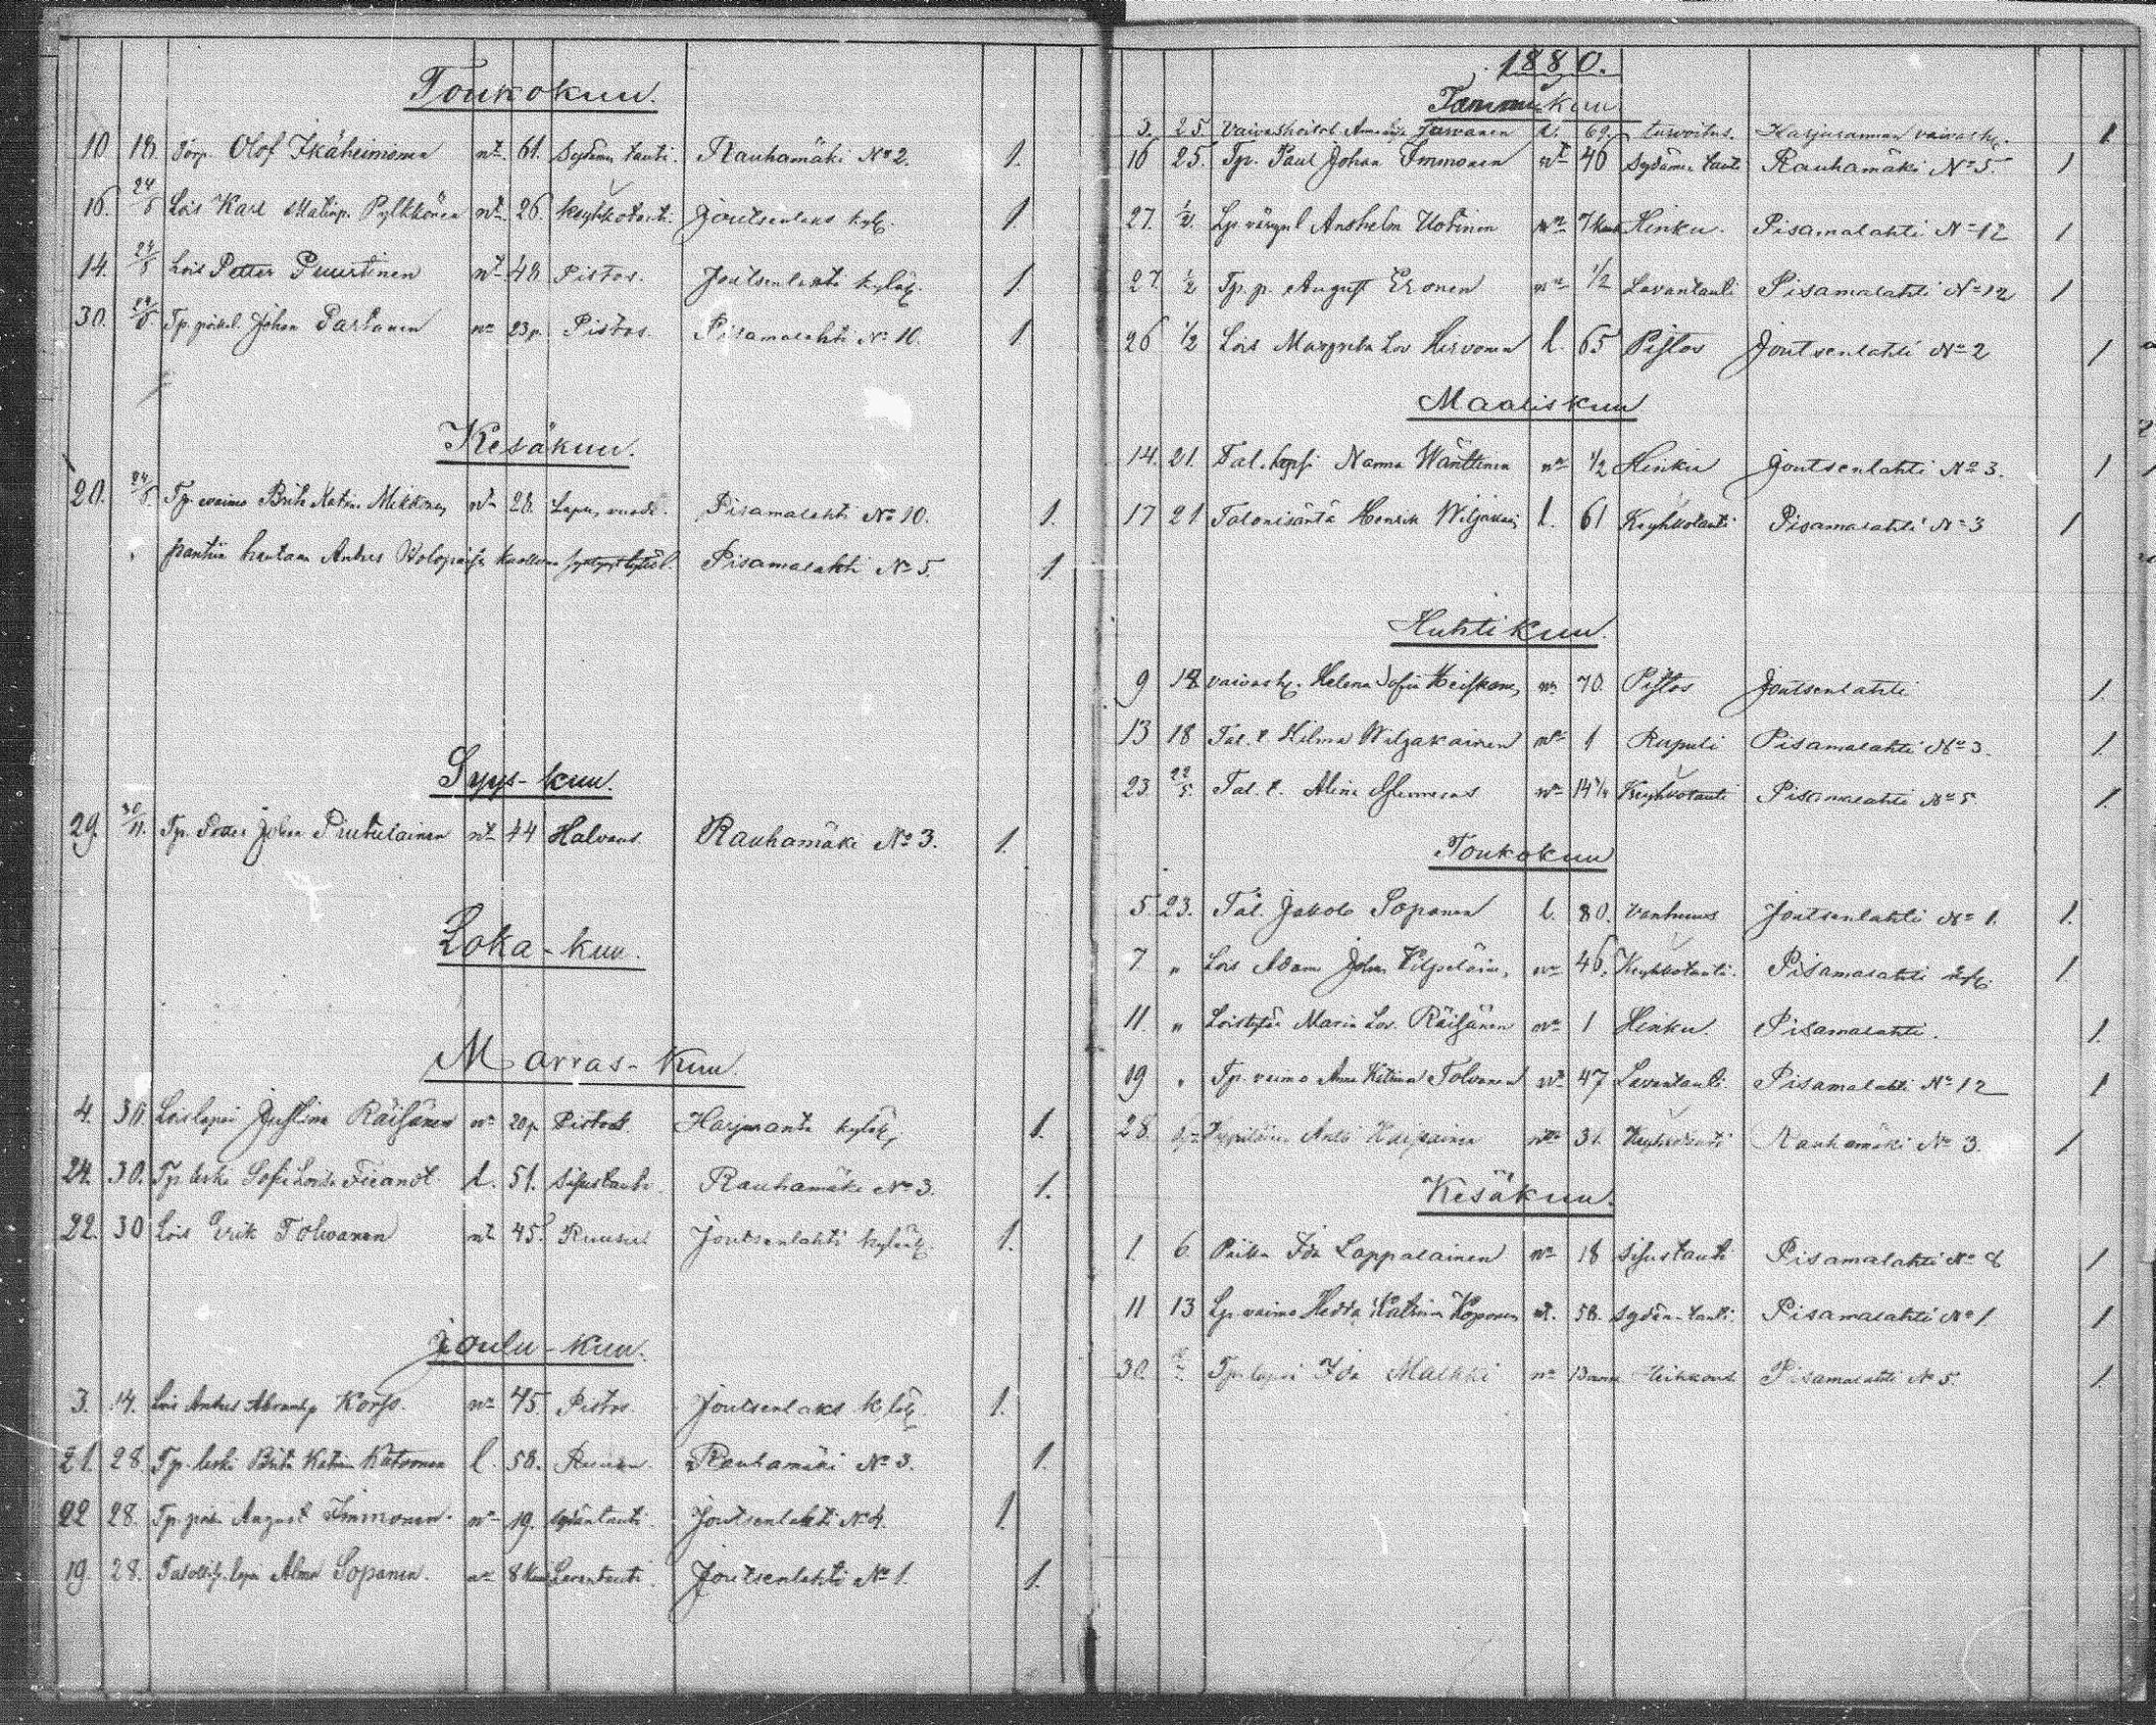 Toukokuu.
10 18. Torp. Olof Ikäheimonen nt. 61. Sydämmtauti. Rauhamäki No 2. 1.
16. 24/5 Lois Karl Matinp. Pylkkönen nt. 26. keuhkotauti. Joutsenlaks kyl. 1.
14. 24/5 Lois Petter Puurtinen nt. 48. Pistos. Joutsenlahti kyläl. 1.
30. Tp. Johan Partanen na 23p. Pistos. Pisamalahti No 10. 1
Kesäkuu.
20. Tp. vaimo Brita Katri Mikkonen nt 28. Lapsen vuode. Pisamalahti No 10. 1.
pantiin hautaan Andres Holopaisen Pisamalahti No 5. 1.
Syys-kuu.
29. Tp. Petter Johan nt 44 Halvaus. Rauhamäki No 3. 1.
Loka-kuu.
Marras-kuu.
4. 30. Lois lapsi Justiina Räisänen na 20p. Pistos. Harjuranta kyläl. 1.
24. 30. Tp. leski Sofi Lovisa Firandt l. 51. Sisustauti. Rauhamäki No 3. 1.
22. 30 Lois Erik Tolwanen nt 45. Ruusu Joutsenlahti kyläl. 1.
Joulu-kuu.
3. 14. Lois Anders Abramsp. na 45. Pistos. Joutsenlaks kyläl. 1.
21. 28. Tp. leski Brita Katrin l. 58. Ruusu. Rauhamäki No 3. 1.
22 28. Tp. poika August Immonen. na 19. sydäntauti. Joutsenlahti No 4. 1.
19. 28. lapsi Alma Sopanen. na 8 kuu Lavantauti. Joutsenlahti No 1. 1.
1880.
Tammikuu
3. 25 l. 69. turvoitus. Harjurannan 1
16 25. Tp. Paul Johan Immonen nt 46 Sydämen tauti Rauhamäki No 5. 1
27. 1/2. Anshelm Kotinen na 7 kuuk Hinku. Pisamalahti No 12 1
27. 1/2 Tp. p. August Eronen na 1/2 Lavantauti Pisamalahti No 12 1
26 1/2 Lois Margreta Lov. Hirvonen l. 65 Pistos Joutsenlahti No 2 1
Maaliskuu
14. 21. Tal. lapsi Nanna Wänttinen na 1/2 Hinku Joutsenlahti No 3. 1
17 21 Talonisäntä Henrik Wiljakain l. 61 Keuhkotauti Pisamalahti No 3 1
Huhtikuu.
9 18 vaivash. Helena Sofia Heiskanen, na 70. Pistos Joutsenlahti 1.
13 18 Tal. l. Hilma Wiljakainen na 1 Rupuli Pisamalahti No 3. 1.
23 22/5 Tal. l. Alina na 14 Keuhkotauti Pisamalahti No 5 1.
Toukokuu
5. 23. Tal. Jakob Sopanen l. 80. Vanhuus Joutsenlahti No 1. 1.
7 " Lois Adam Johan na 46. Keuhkotauti. Pisamalahti kyl. 1
11 " Loistyt. Maria Lov. Räisänen na 1 Hinku. Pisamalahti. 1.
19 " Tp. vaimo Anna Katrina Tolvanen nt 47 Lavantauti Pisamalahti No 12 1
28. Antti na 31. Keuhkotauti Rauhamäki No 3. 1
Kesäkuu.
1. 6 Piika Ida Lappalainen na 18 Sisustauti Pisamalahti No 8 1
11 13 Lp. vaimo Hedda Katrina Koponen nt. 58. Sydän-tauti. Pisamalahti No 1. 1
30. Tp. lapsi Ida Malkki na Heikkous. Pisamalahti No 5. 1.